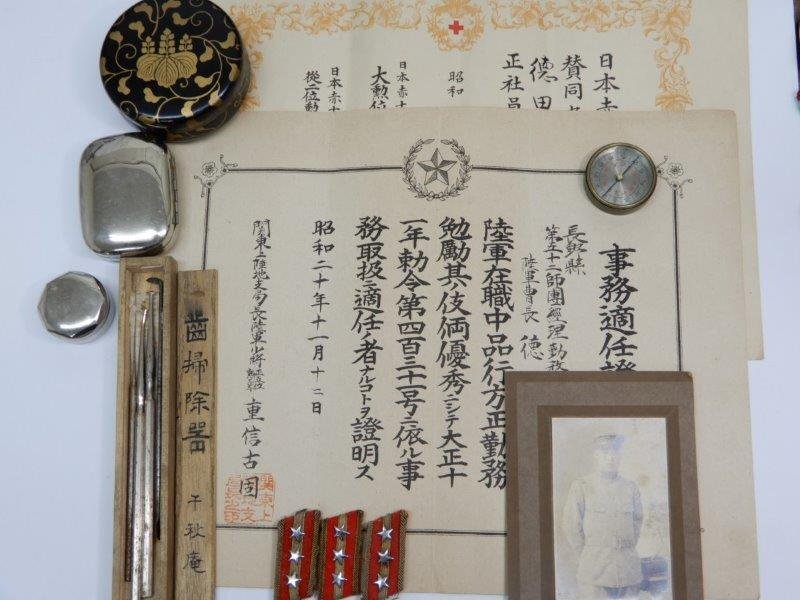 日本赤
賛同
德田
正社員
昭和
日本赤十
大勲位
日本赤十
從二位勲
事務適任證
長野縣
第五十二師團經理勤務
陸軍曹長 德
陸軍在職中品行方正勤務
勉勵其ノ伎倆優秀ニシテ大正十
一年勅令第四百三十一号ニ依ル事
務取扱ニ適任ノ者ナルコトヲ證明ス
昭和二十年十一月十二日
関東上陸地支局長陸軍少將
重信吉固
歯掃除器
千秋庵